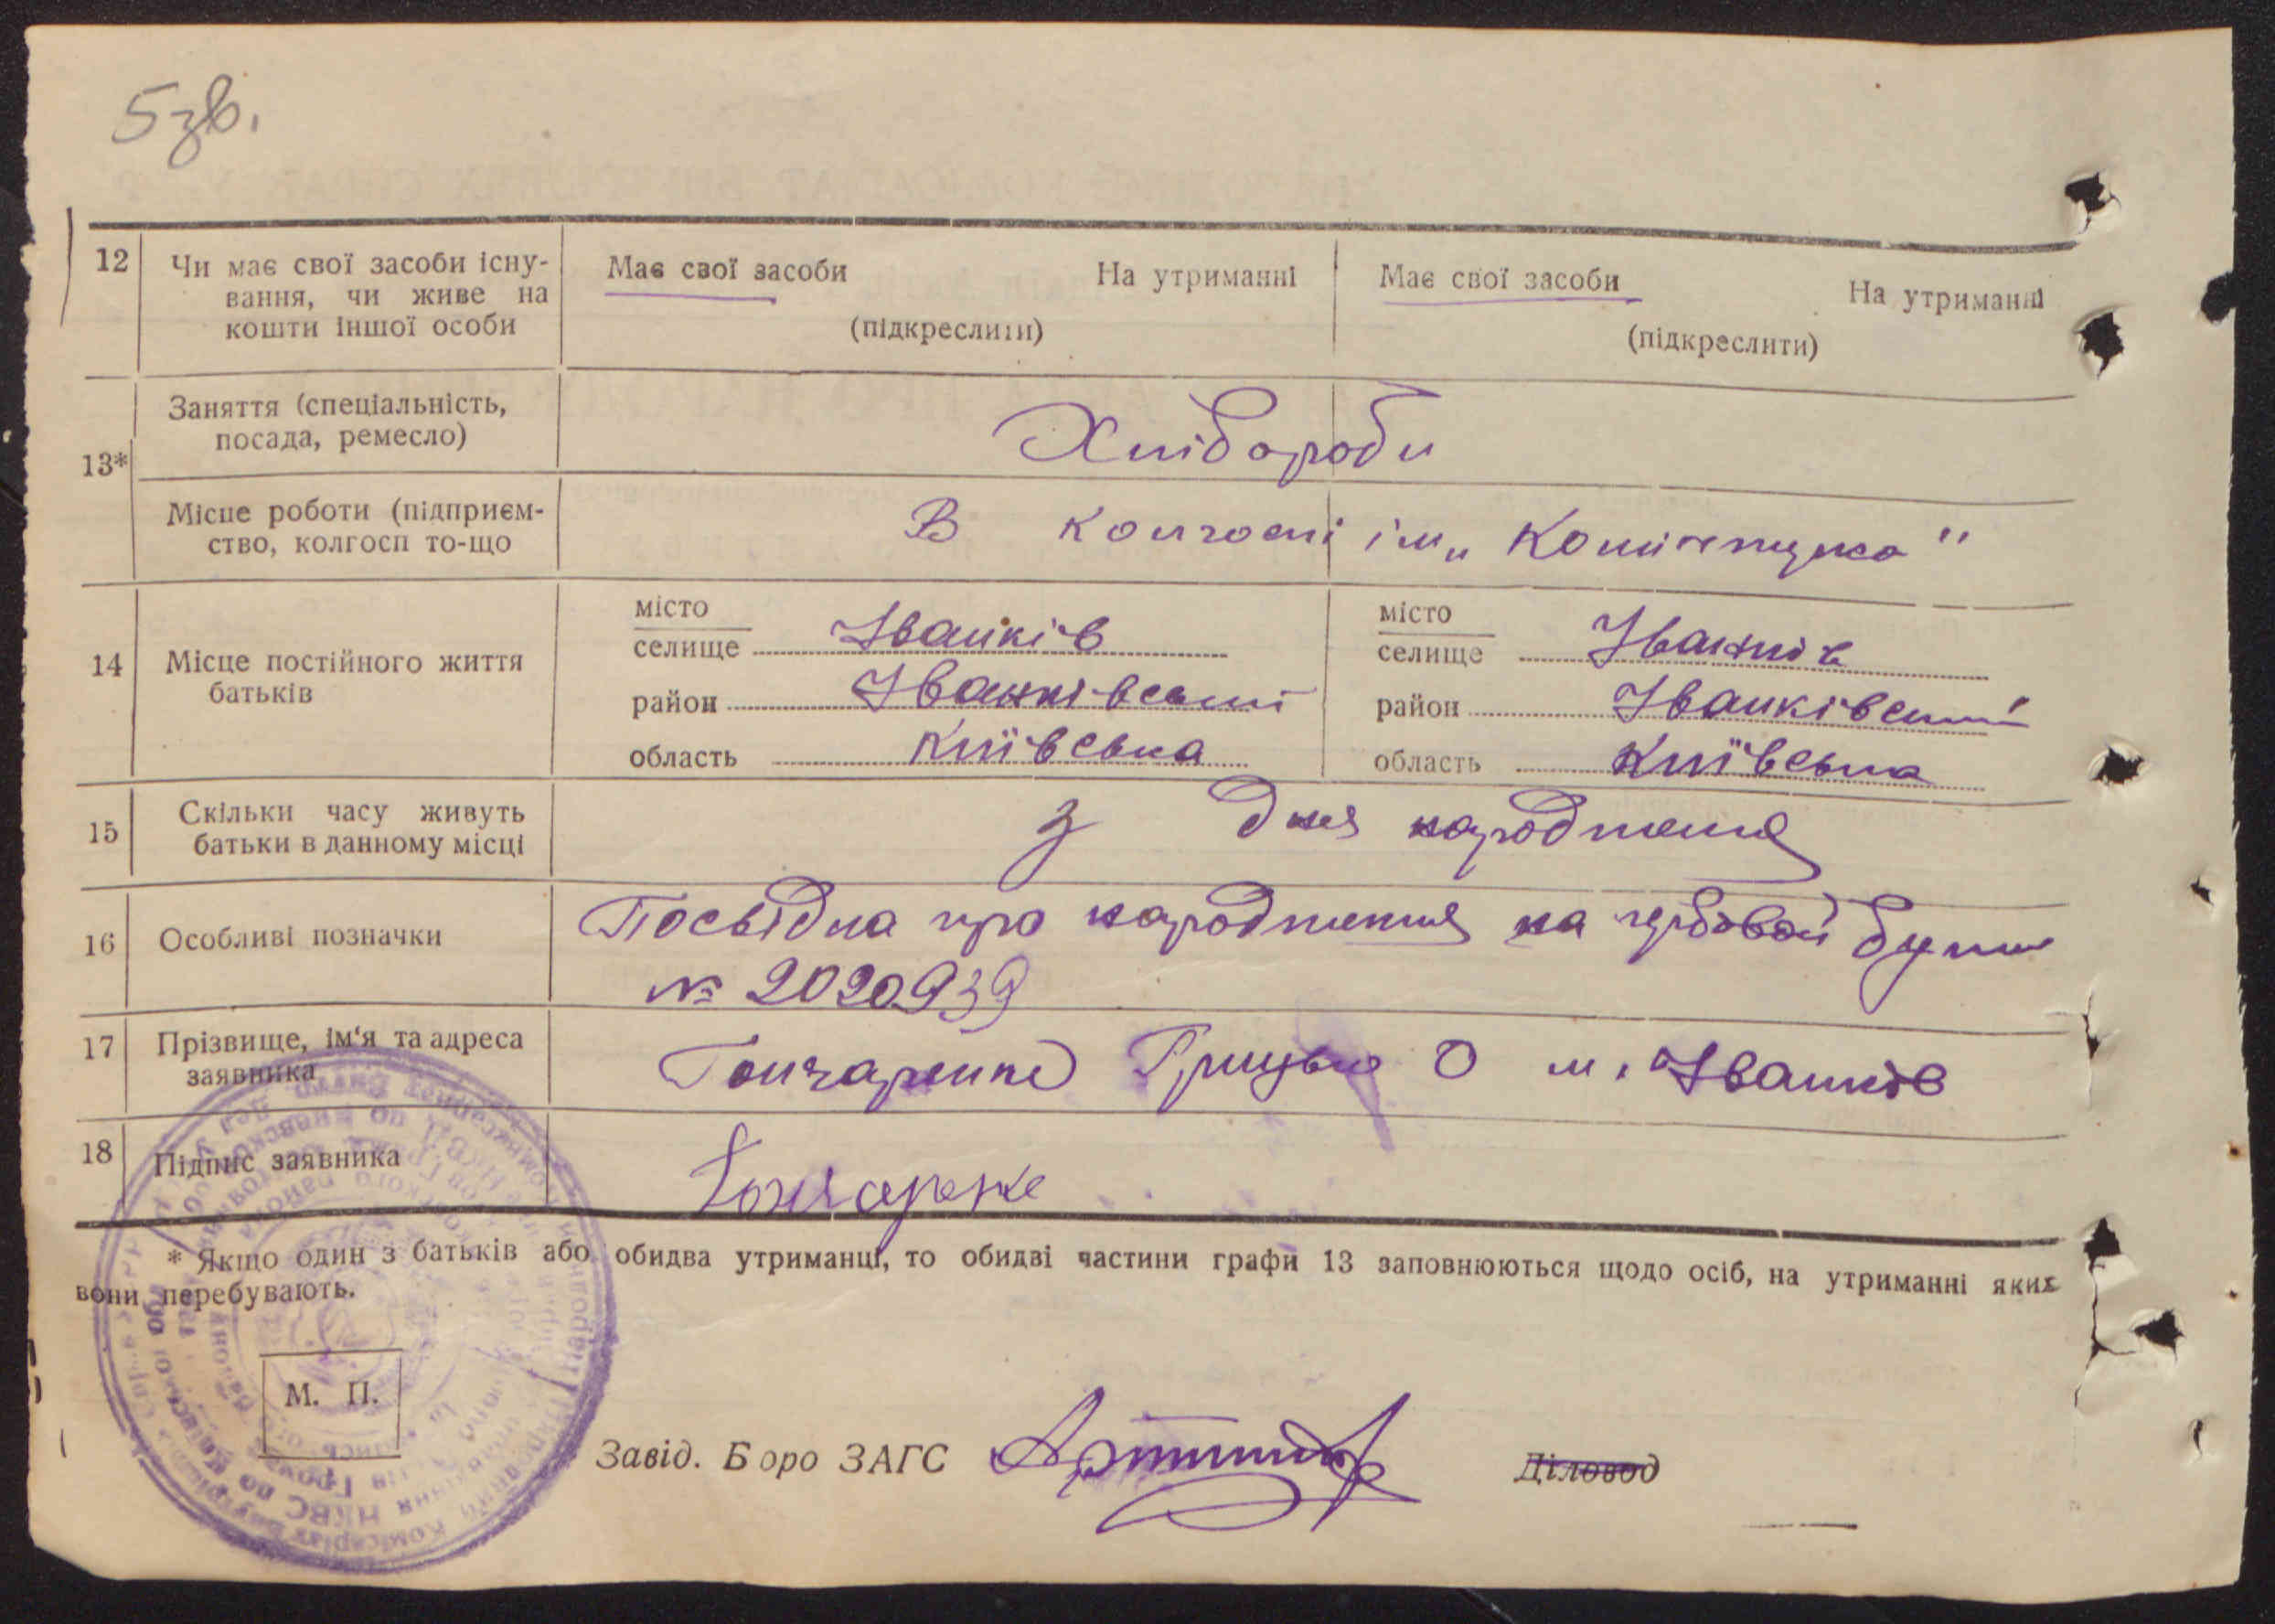 5 зв.
12 Чи має свої засоби існу- Має свої засоби На утриманні Має свої засоби На утриманні
вання, чи живе на
кошти іншої особи (підкреслити) (підкреслити)
Заняття (спеціальність,
посада, ремесло) Хлібороби
13*
Місце роботи (підприєм- В колгоспі ім. „Комінтерна"
ство, колгосп то-що
місто місто
селище Іванків селище Іванків
14 Місце постійного життя
батьків
район Іванківський район Іванківський
область Київська область Київська
15 Скільки часу живуть з дня народження
батьки в данному місці
16 Особливі позначки Посвідка про народження на гербовой бумазі
№ 2020939
17 Прізвище, ім'я та адреса Гончаренко Грицько О м. Іванків
заявника
18 Підпис заявника Гончаренке
* Якщо один з батьків або обидва утриманці, то обидві частини графи 13 заповнюються щодо осіб, на утриманні яких
вони перебувають.
М. П.
Завід. Бюро ЗАГС Діловод